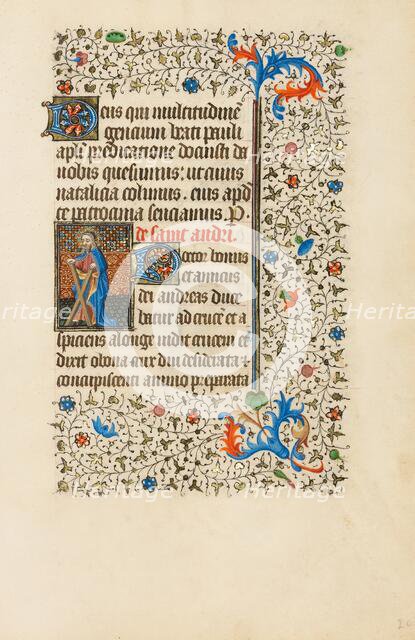 Deus qui multitudinē
gencium beati pauli
apl̄i predicatione docuisti da
nobis quesumus: ut cuius
natalicia colimus. eius apd
te patrocinia senciamus. P.
de saint andri.
Doctor bonus
et amicus
dei andreas duce
batur ad crucē et a
spiciens a longe vidit crucem et
dixit o bona crux diu desiderata et
concupiscenti animo preparata
Heritage
Heritage
Heritage
Heritage
Heritage
Heritage